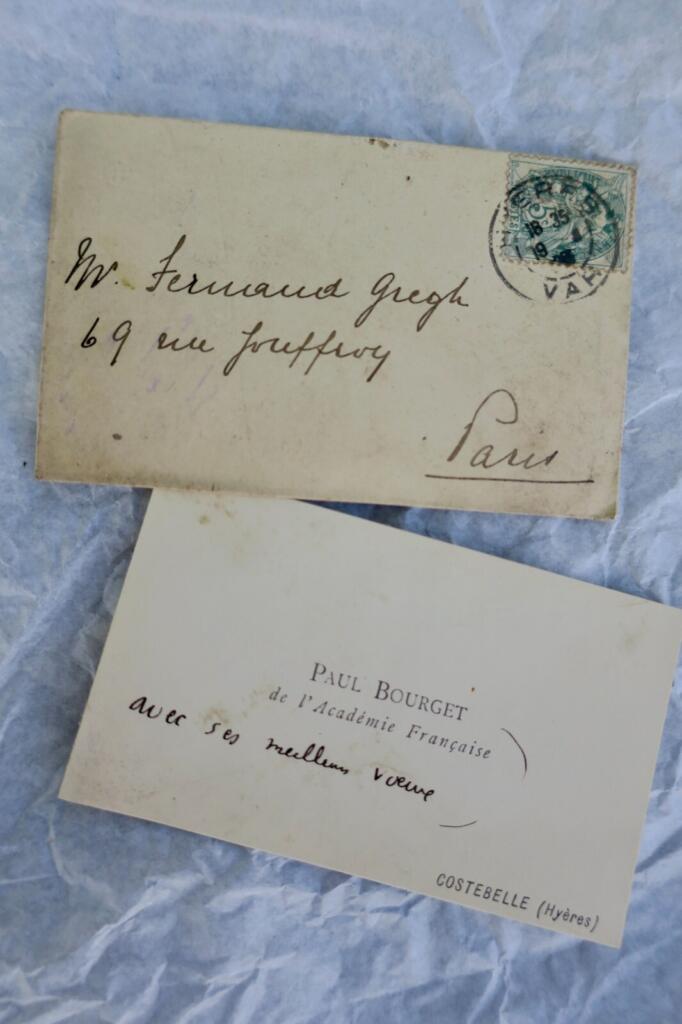 Mr. Fernand Gregh
69 rue Jouffroy
Paris
18 35
VAR
PAUL BOURGET
de l'Académie Française
avec ses meilleurs vœux
COSTEBELLE (Hyères)